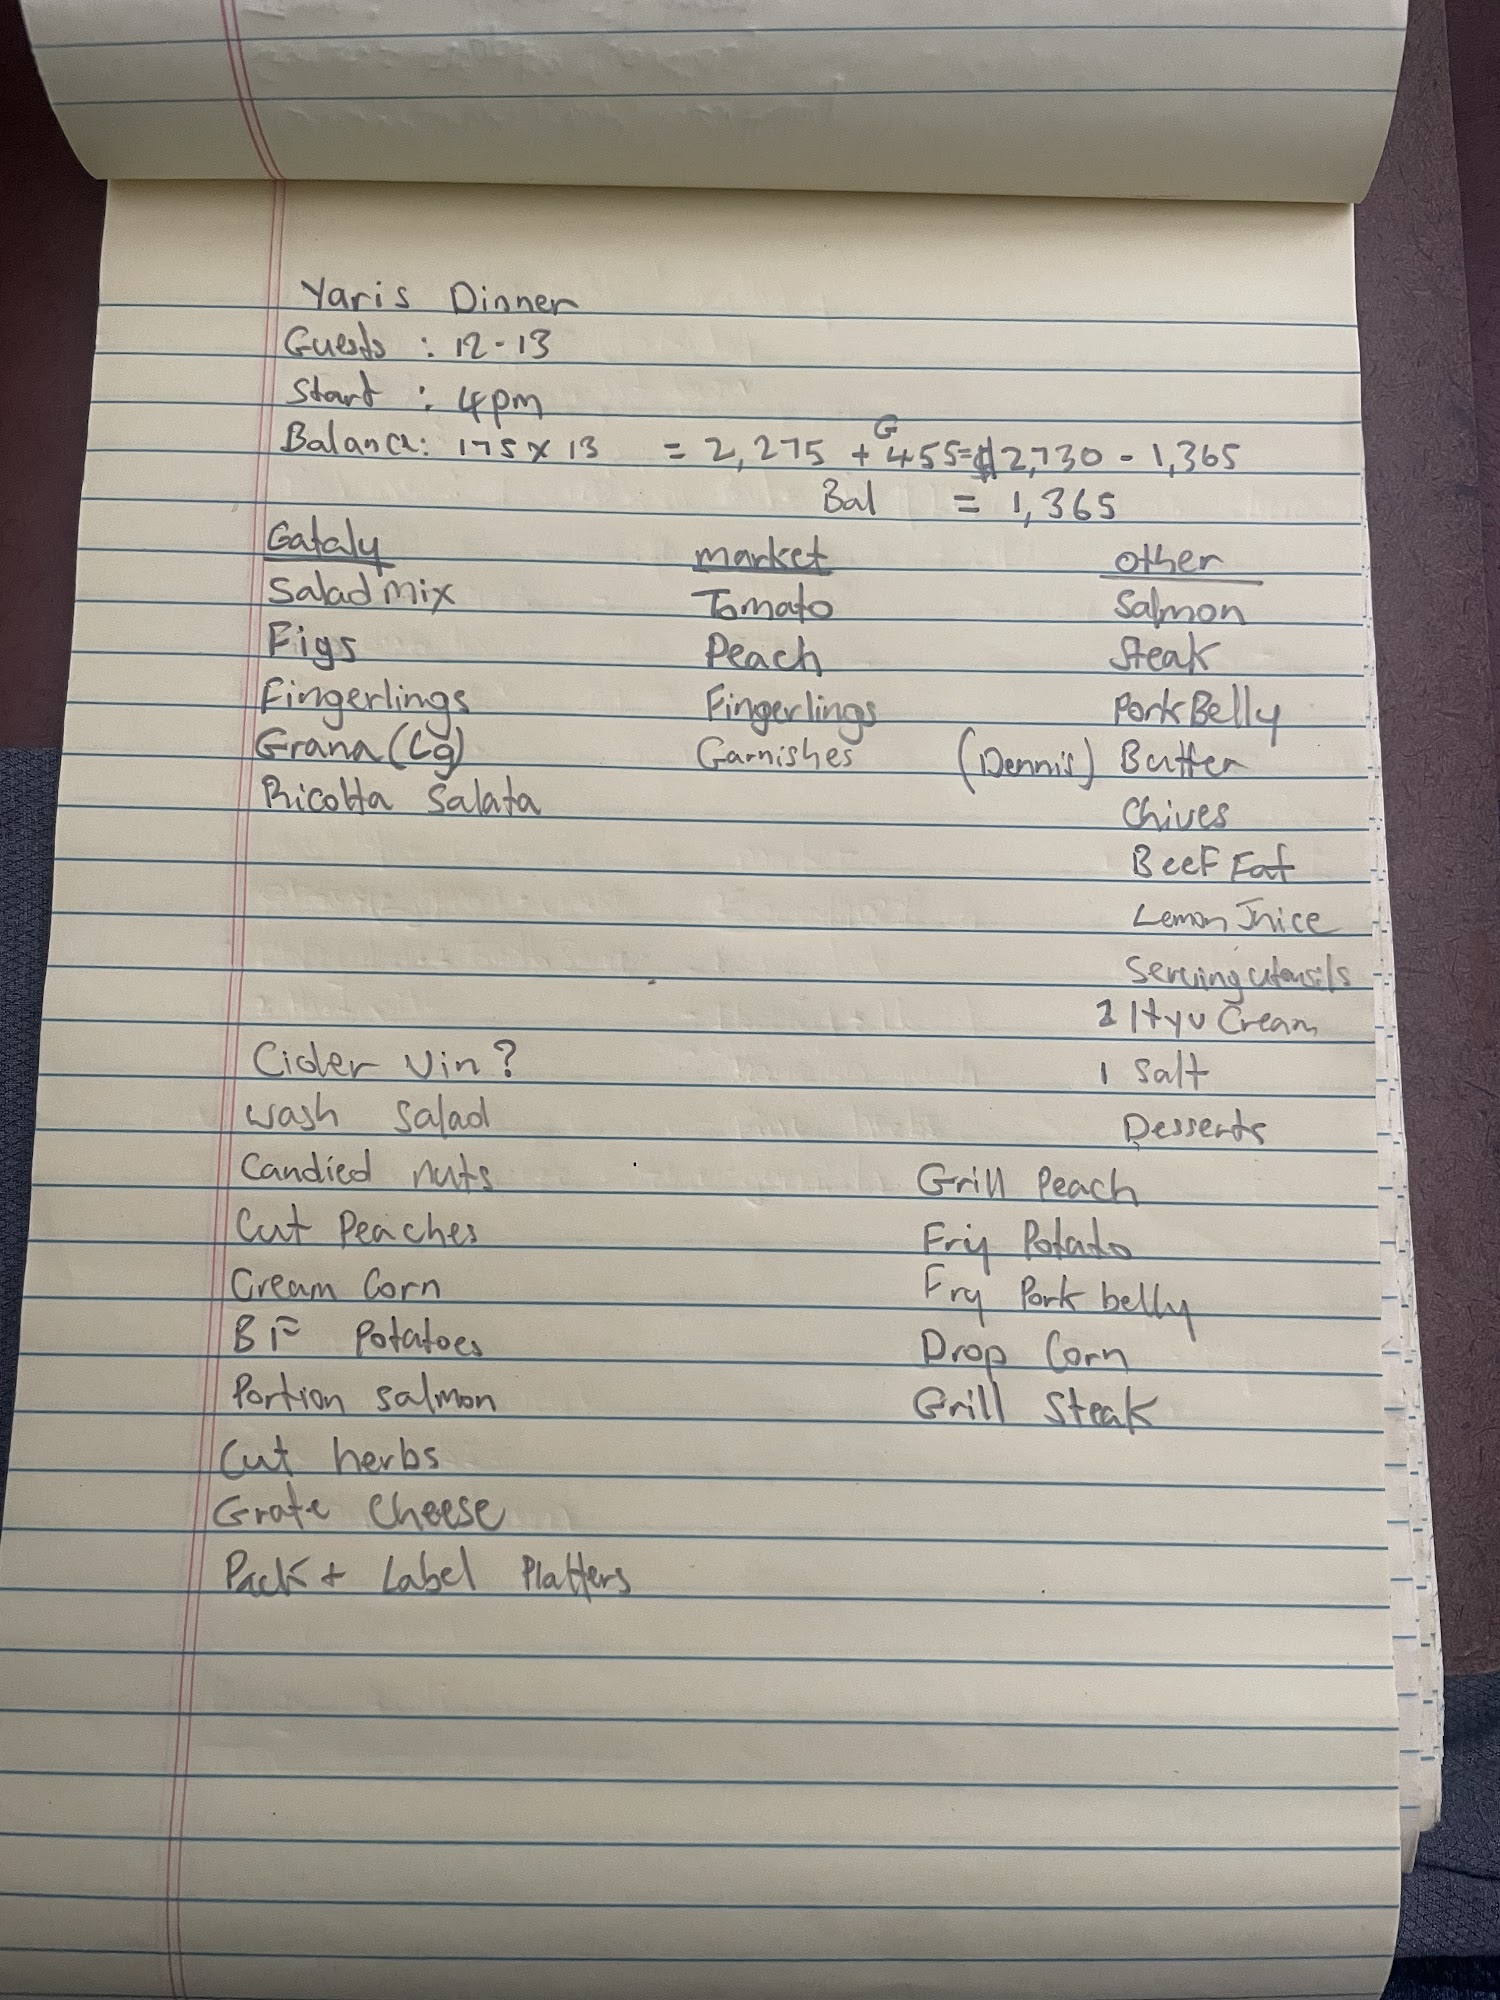 Yaris Dinner
Guests : 12-13
Start : 4pm
Balance: 175 x 13 = 2,275 + 455 = $2,730 - 1,365
G
Bal = 1,365
Eataly
Salad mix
Figs
Fingerlings
Grana (Lg)
Ricotta Salata
market
Tomato
Peach
Fingerlings
Garnishes
other
Salmon
Steak
Pork Belly
(Dennis) Butter
Chives
Beef Fat
Lemon Juice
Serving utensils
Cream
1 Salt
Desserts
Cider Vin?
wash salad
Candied nuts
Cut Peaches
Cream Corn
BF Potatoes
Portion salmon
Cut herbs
Grate Cheese
Pack + Label Platters
Grill Peach
Fry Potato
Fry Pork belly
Drop Corn
Grill Steak